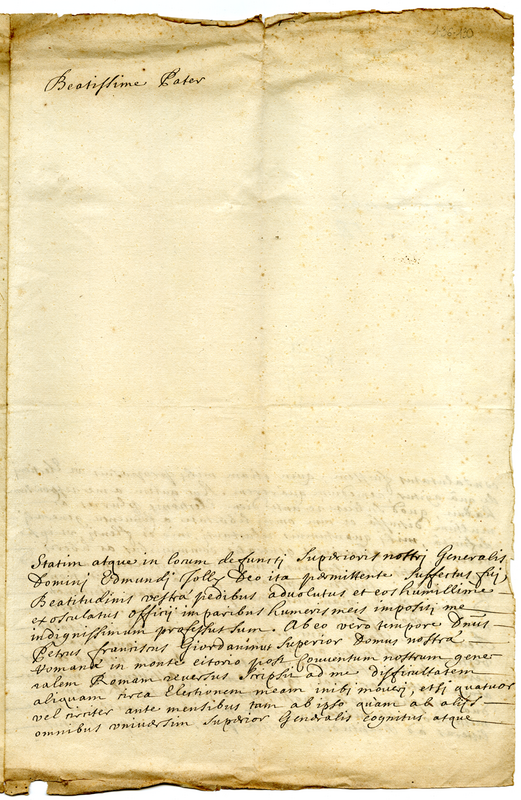 Beatissime Pater
Statim atque in locum defunctj Superioris nostrj Generalis
Dominj Edmundj Jolly Deo ita permittente suffectus fuj,
Beatitudinis vestræ pedibus advolutus et eos humillime
exosculatus officij imparibus humeris meis impositi me
indignissimum professus sum. Ab eo vero tempore Dnus
Petrus franciscus Giordaninus superior Domus nostræ
Romanæ in monte citorio post Conventum nostrum gene-
ralem Romam reversus scripsit ad me difficultatem
aliquam circa Electionem meam inibj moverj, etsj quatuor
vel circiter ante mensibus tam ab ipso quam ab alijs
omnibus universim superior Generalis cognitus atque